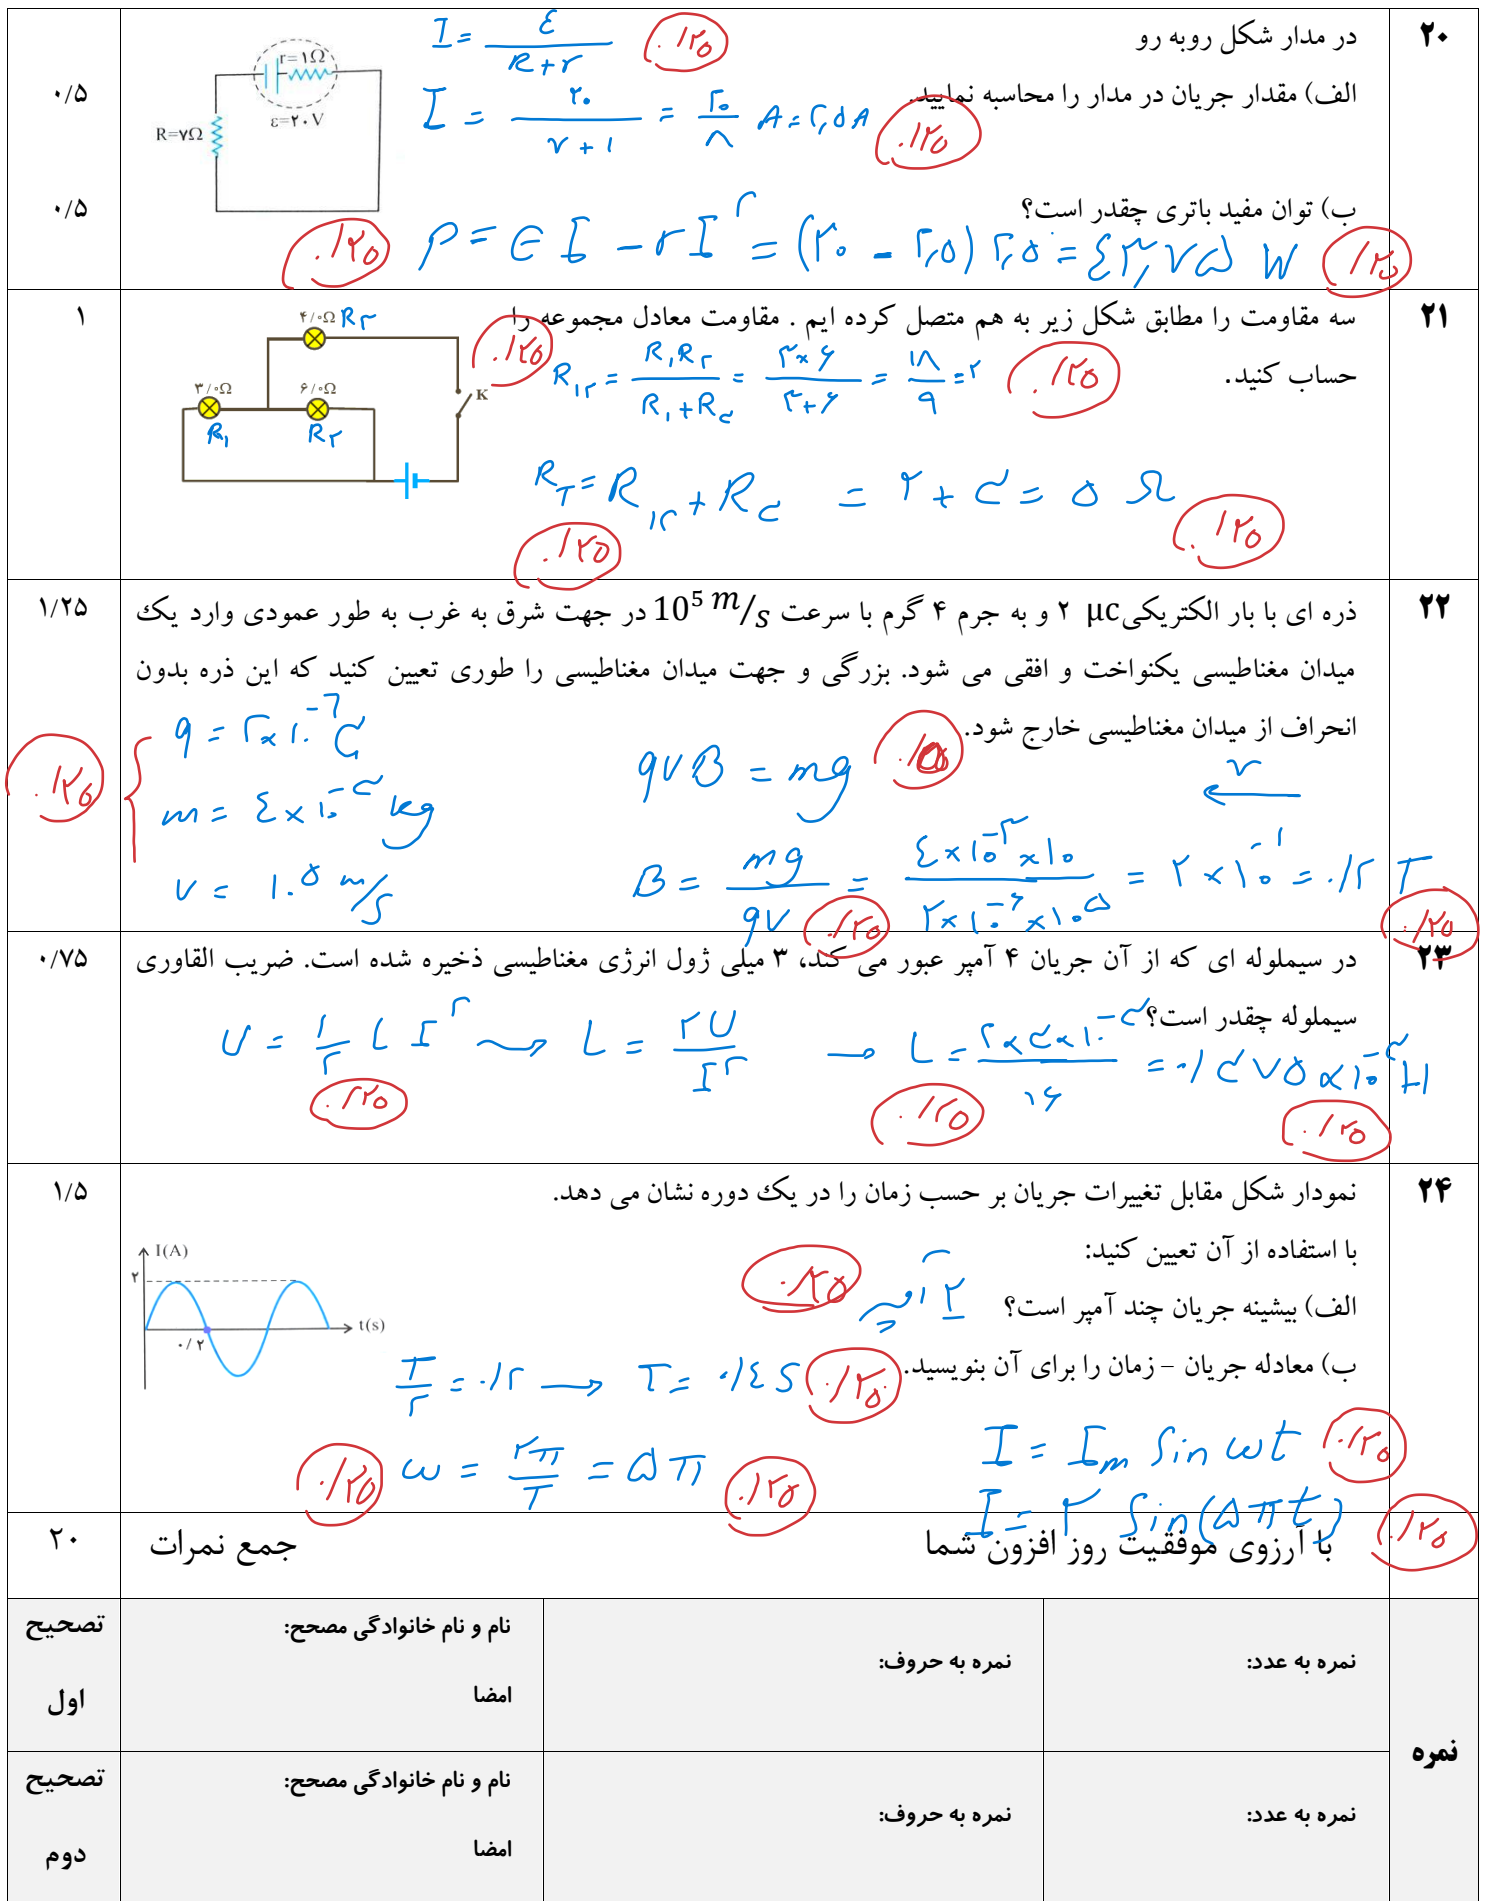 ۲۰
در مدار شکل روبه رو
I = ε / (R + r) ۰/۲۵
الف) مقدار جریان در مدار را محاسبه نمایید.
۰/۵
I = ۲۰ / (۷ + ۱) = ۲۰ / ۸ A = ۲,۵ A ۰/۲۵
r=۱Ω
ε=۲۰V
R=۷Ω
ب) توان مفید باتری چقدر است؟
۰/۵
P = ε I - r I^۲ = (۲۰ - ۲,۵) ۲,۵ = ۴۳,۷۵ W ۰/۲۵
۰/۲۵
۲۱
سه مقاومت را مطابق شکل زیر به هم متصل کرده ایم . مقاومت معادل مجموعه را
حساب کنید.
۱
۴/۰Ω R۳
۳/۰Ω
۶/۰Ω
K
R۱
R۲
R۱۲ = R۱R۲ / (R۱ + R۲) = ۳×۶ / (۳+۶) = ۱۸ / ۹ = ۲ ۰/۲۵
۰/۲۵
RT = R۱۲ + R۳ = ۲ + ۳ = ۵ Ω ۰/۲۵
۰/۲۵
۲۲
ذره ای با بار الکتریکی ۲ μc و به جرم ۴ گرم با سرعت 10⁵ m/s در جهت شرق به غرب به طور عمودی وارد یک
۱/۲۵
میدان مغناطیسی یکنواخت و افقی می شود. بزرگی و جهت میدان مغناطیسی را طوری تعیین کنید که این ذره بدون
انحراف از میدان مغناطیسی خارج شود.
q = ۲×۱۰^-۶ C
qvB = mg
v
m = ۴×۱۰^-۳ kg
۰/۲۵
v = ۱۰^۵ m/s
B = mg / qv = ۴×۱۰^-۳×۱۰ / ۲×۱۰^-۶×۱۰^۵ = ۲×۱۰^-۱ = ۰/۲ T
۰/۲۵
۰/۲۵
۲۳
در سیملوله ای که از آن جریان ۴ آمپر عبور می کند، ۳ میلی ژول انرژی مغناطیسی ذخیره شده است. ضریب القاوری
۰/۷۵
سیملوله چقدر است؟
U = ۱/۲ L I^۲ → L = ۲U / I^۲ → L = ۲×۳×۱۰^-۳ / ۱۶ = ۰/۳۷۵×۱۰^-۳ H
۰/۲۵
۰/۲۵
۰/۲۵
۲۴
نمودار شکل مقابل تغییرات جریان بر حسب زمان را در یک دوره نشان می دهد.
۱/۵
با استفاده از آن تعیین کنید:
الف) بیشینه جریان چند آمپر است؟ ۲ آمپر ۰/۲۵
I(A)
۲
t(s)
۰/۲
ب) معادله جریان – زمان را برای آن بنویسید.
T/۲ = ۰/۲ → T = ۰/۴ S ۰/۲۵
I = Im Sin ωt ۰/۲۵
ω = ۲π / T = ۵π ۰/۲۵
۰/۲۵
I = ۲ Sin(۵πt) ۰/۲۵
با آرزوی موفقیت روز افزون شما
جمع نمرات
۲۰
نمره
نمره به عدد:
نمره به حروف:
نام و نام خانوادگی مصحح:
امضا
تصحیح
اول
نمره به عدد:
نمره به حروف:
نام و نام خانوادگی مصحح:
امضا
تصحیح
دوم